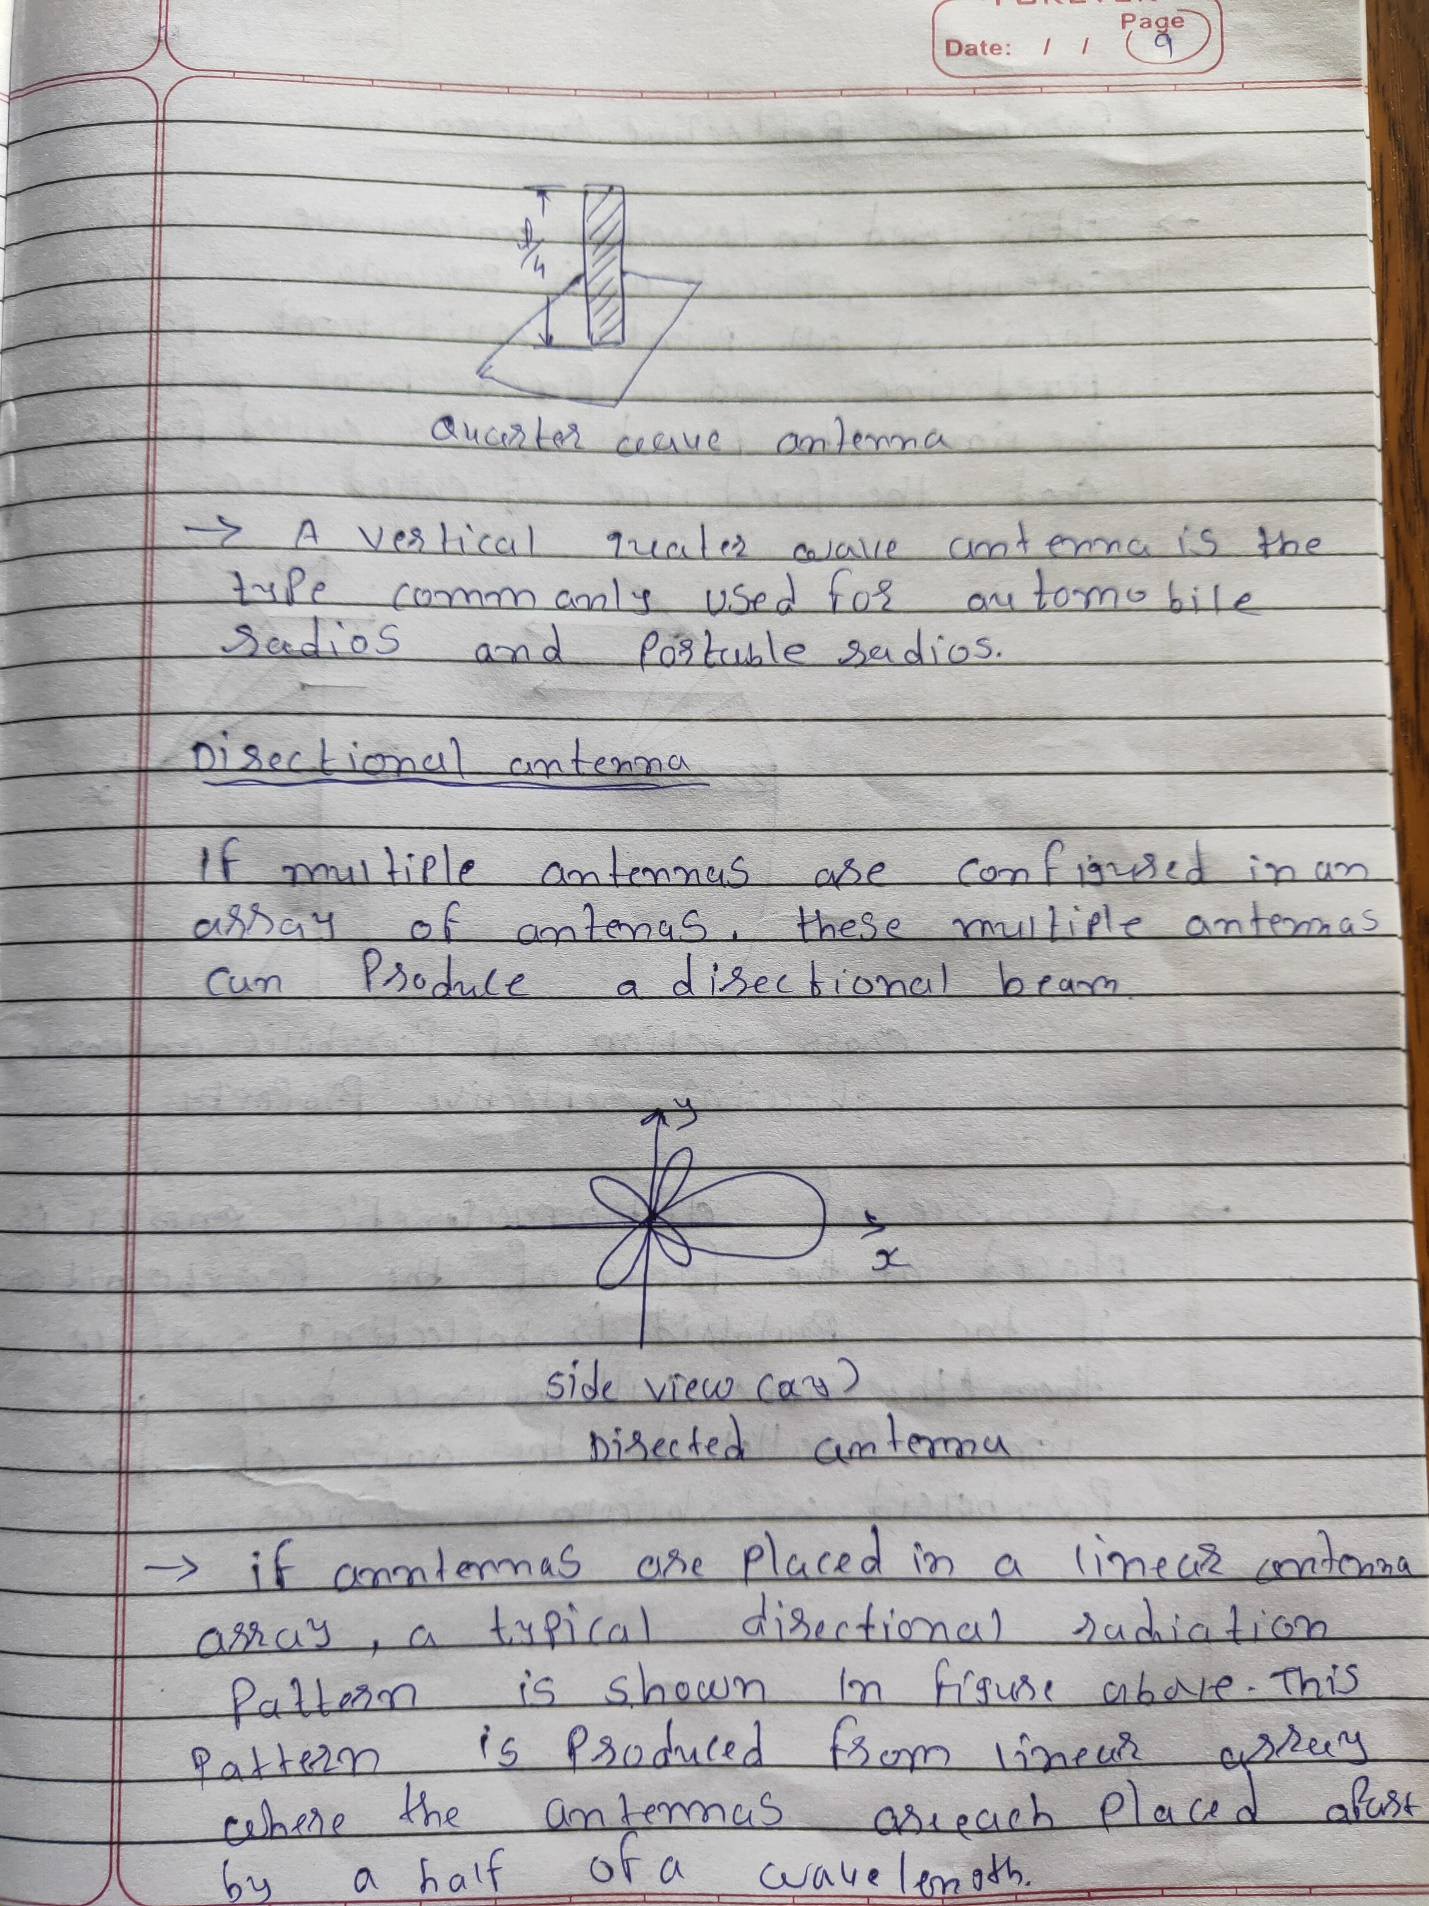 Page
Date: / / 9
λ/4
Quarter wave antenna
→ A vertical quater wave antenna is the
type commanly used for automobile
radios and Portable radios.
Directional antenna
If multiple antennas are configured in an
array of antenas. these multiple antennas
can Produce a directional beam
y
x
side view (xy)
Directed antenna
→ if anntennas are placed in a linear antenna
array, a typical directional radiation
Pattern is shown In figure above. This
Pattern is produced from linear array
where the antennas are each placed apart
by a half of a wavelength.